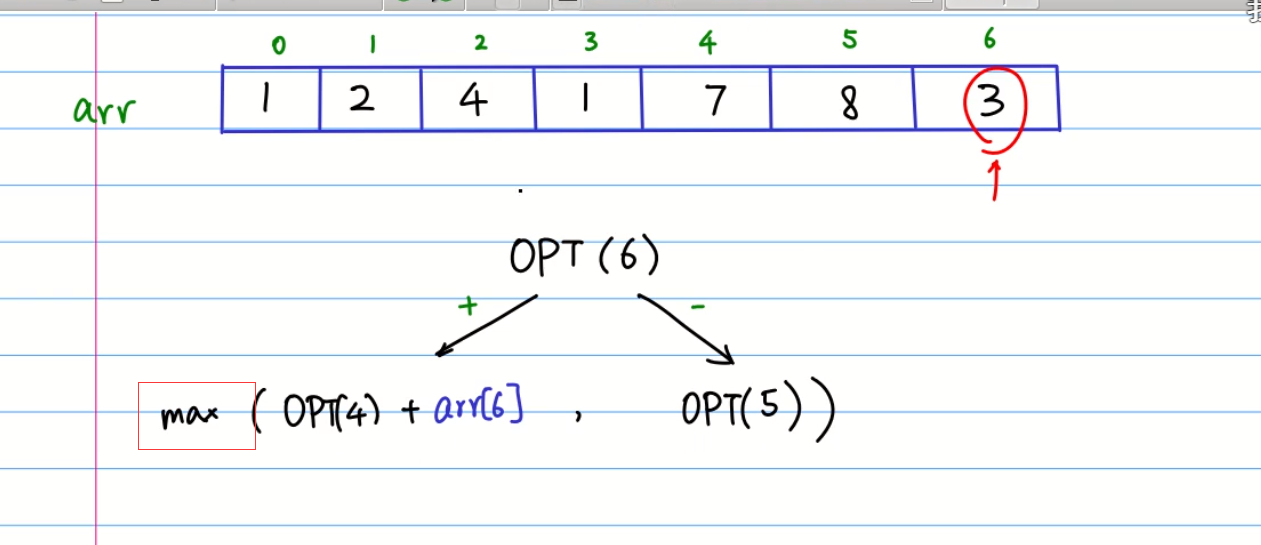 0 1 2 3 4 5 6
arr 1 2 4 1 7 8 3
OPT (6)
+ -
max ( OPT(4) + arr[6] , OPT(5) )